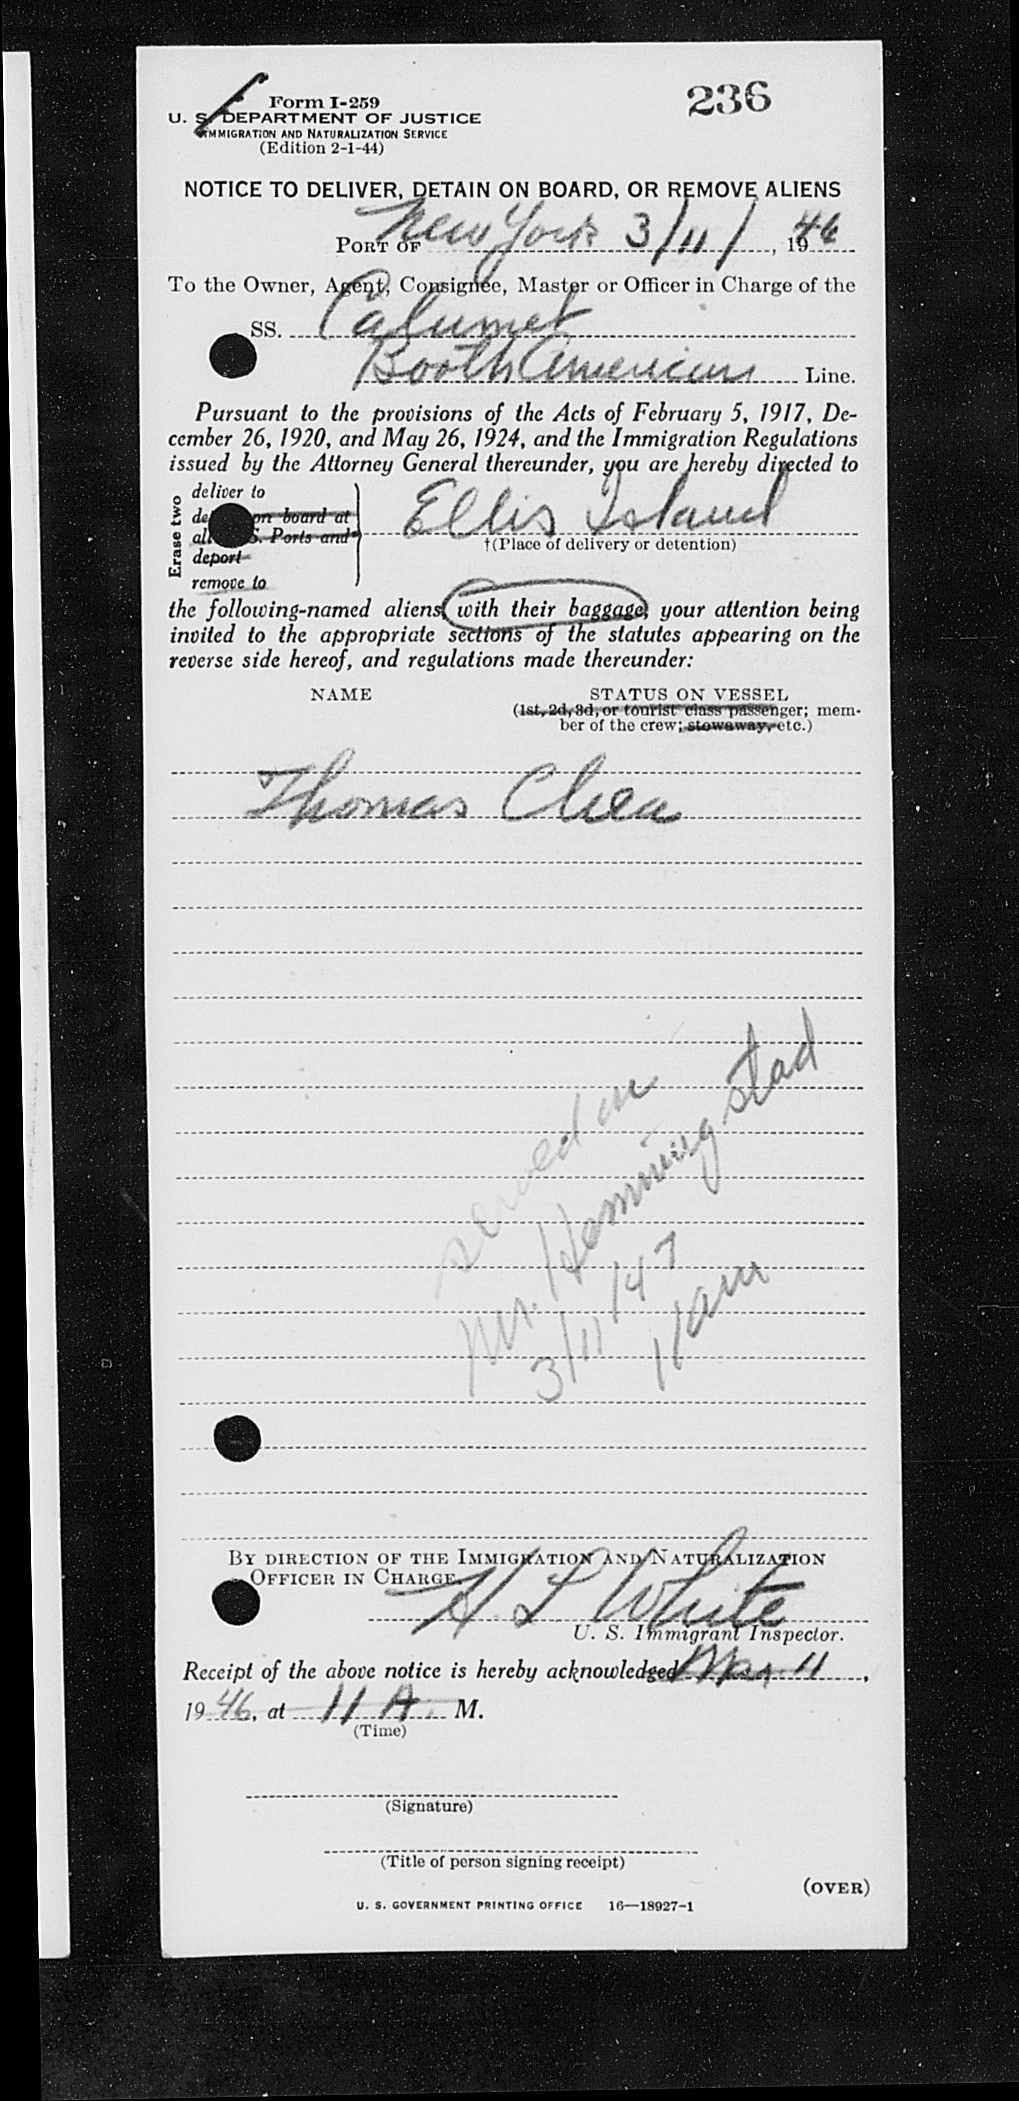 Form I-259
236
U. S. DEPARTMENT OF JUSTICE
IMMIGRATION AND NATURALIZATION SERVICE
(Edition 2-1-44)
NOTICE TO DELIVER, DETAIN ON BOARD, OR REMOVE ALIENS
PORT OF New York 3/11/, 1946
To the Owner, Agent, Consignee, Master or Officer in Charge of the
SS. Calumet
Booth American Line.
Pursuant to the provisions of the Acts of February 5, 1917, De-
cember 26, 1920, and May 26, 1924, and the Immigration Regulations
issued by the Attorney General thereunder, you are hereby directed to
Erase two
deliver to
de on board at
all S. Ports and
deport
remove to
Ellis Island
†(Place of delivery or detention)
the following-named aliens, with their baggage, your attention being
invited to the appropriate sections of the statutes appearing on the
reverse side hereof, and regulations made thereunder:
NAME STATUS ON VESSEL
(1st, 2d, 3d, or tourist class passenger; mem-
ber of the crew; stowaway, etc.)
Thomas Chea
served on
Mr. Hemmingstad
3/11/47
11am
BY DIRECTION OF THE IMMIGRATION AND NATURALIZATION
OFFICER IN CHARGE.
H L White
U. S. Immigrant Inspector.
Receipt of the above notice is hereby acknowledged Mar 11,
1946, at 11 A. M.
(Time)
(Signature)
(Title of person signing receipt)
(OVER)
U. S. GOVERNMENT PRINTING OFFICE 16—18927-1